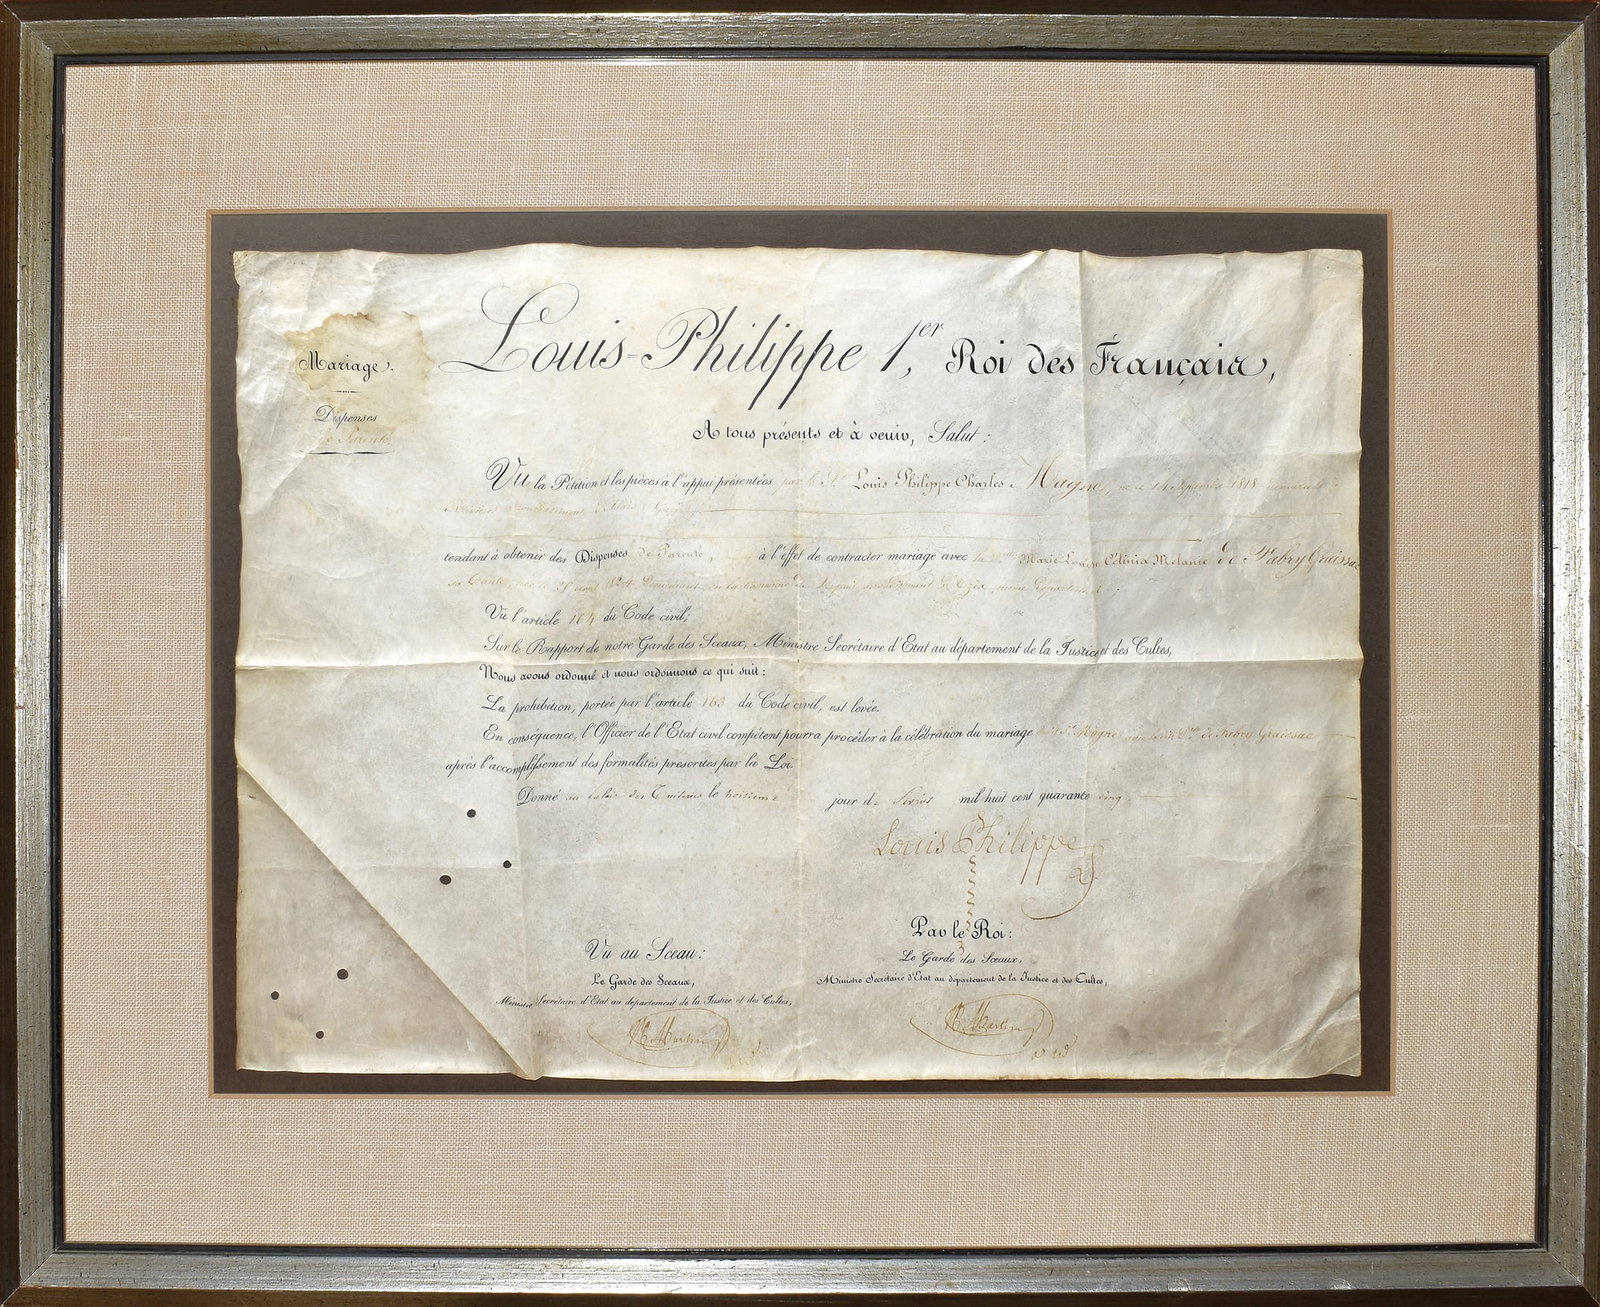 Louis-Philippe 1.er Roi des Français,
Mariage.
Dispenses
de Parenté
A tous présents et à venir, Salut:
Vu la Pétition et les pièces à l'appui présentées par le Sr Louis Philippe Charles Magne, né le 14 Septembre 1818
tendant à obtenir des Dispenses de Parenté, à l'effet de contracter mariage avec la Dlle Marie Louise Mélanie de Fabry Graissac
sa Tante, née le 1824
Vu l'article 164 du Code civil;
Sur le Rapport de notre Garde des Sceaux, Ministre Secrétaire d'Etat au département de la Justice et des Cultes,
Nous avons ordonné et nous ordonnons ce qui suit:
La prohibition, portée par l'article 163 du Code civil, est levée.
En conséquence, l'Officier de l'Etat civil compétent pourra procéder à la célébration du mariage Sr Magne Dlle de Fabry Graissac
après l'accomplissement des formalités prescrites par la Loi.
Donné au palais des Tuileries le huitième jour de Février mil huit cent quarante cinq
Louis Philippe
Par le Roi:
Le Garde des Sceaux,
Ministre Secrétaire d'Etat au département de la Justice et des Cultes,
N. Martin
Vu au Sceau:
Le Garde des Sceaux,
Ministre Secrétaire d'Etat au département de la Justice et des Cultes,
N. Martin